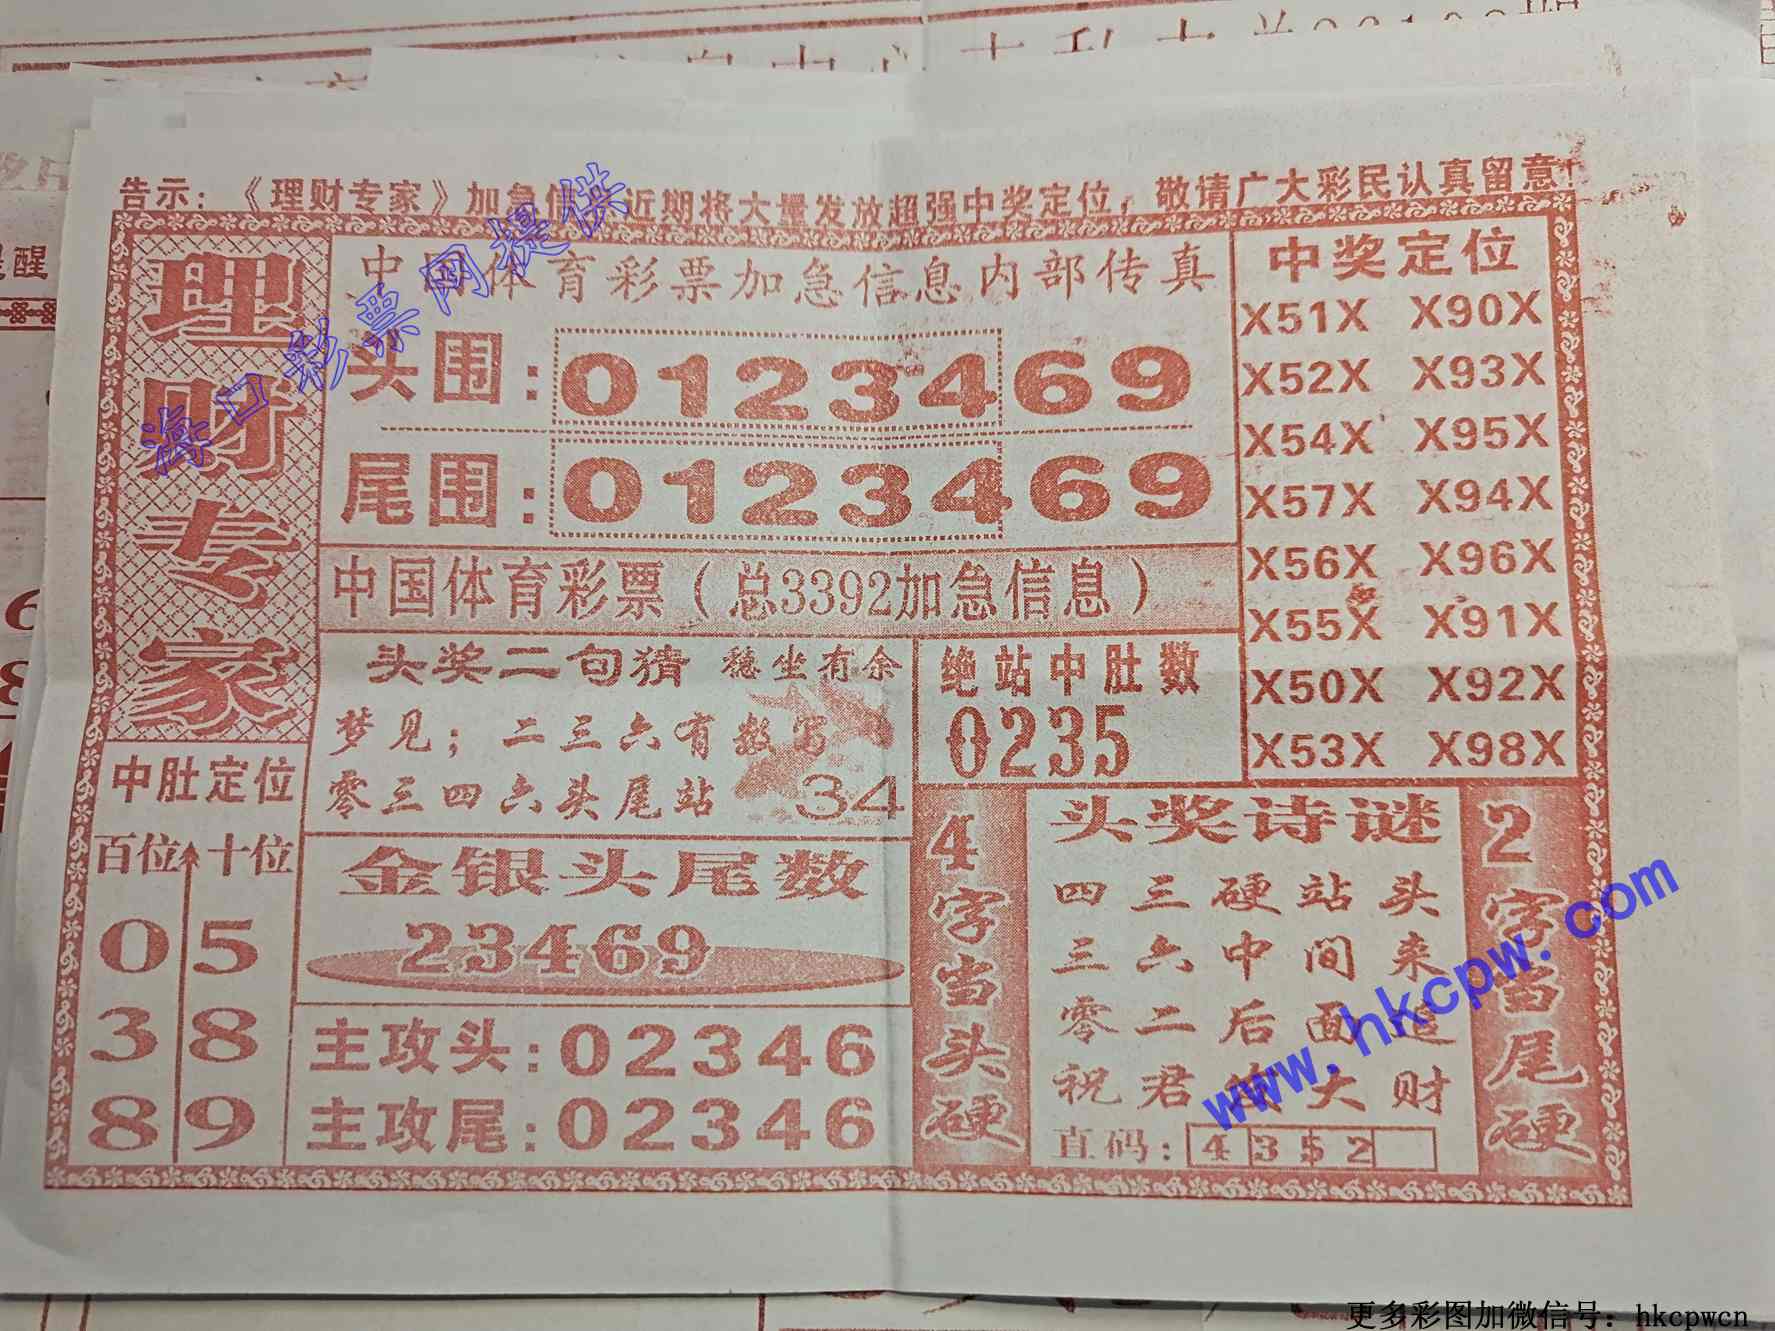 告示：《理财专家》加急信 近期将大量发放超强中奖定位，敬请广大彩民认真留意！
理财专家
中国体育彩票加急信息内部传真
头围：0123469
尾围：0123469
中国体育彩票（总3392加急信息）
头奖二句猜 稳坐有余
梦见；二三六有数富
零三四六头尾站 34
绝站中肚数
0235
中奖定位
X51X X90X
X52X X93X
X54X X95X
X57X X94X
X56X X96X
X55X X91X
X50X X92X
X53X X98X
中肚定位
百位 十位
0 5
3 8
8 9
金银头尾数
23469
主攻头：02346
主攻尾：02346
4字当头硬
头奖诗谜
四三硬站头
三六中间来
零二后面追
祝君 大财
直码：4 3 5 2
2字当尾硬
海口彩票网提供
www.hkcpw.com
提醒
更多彩图加微信号：hkcpwcn